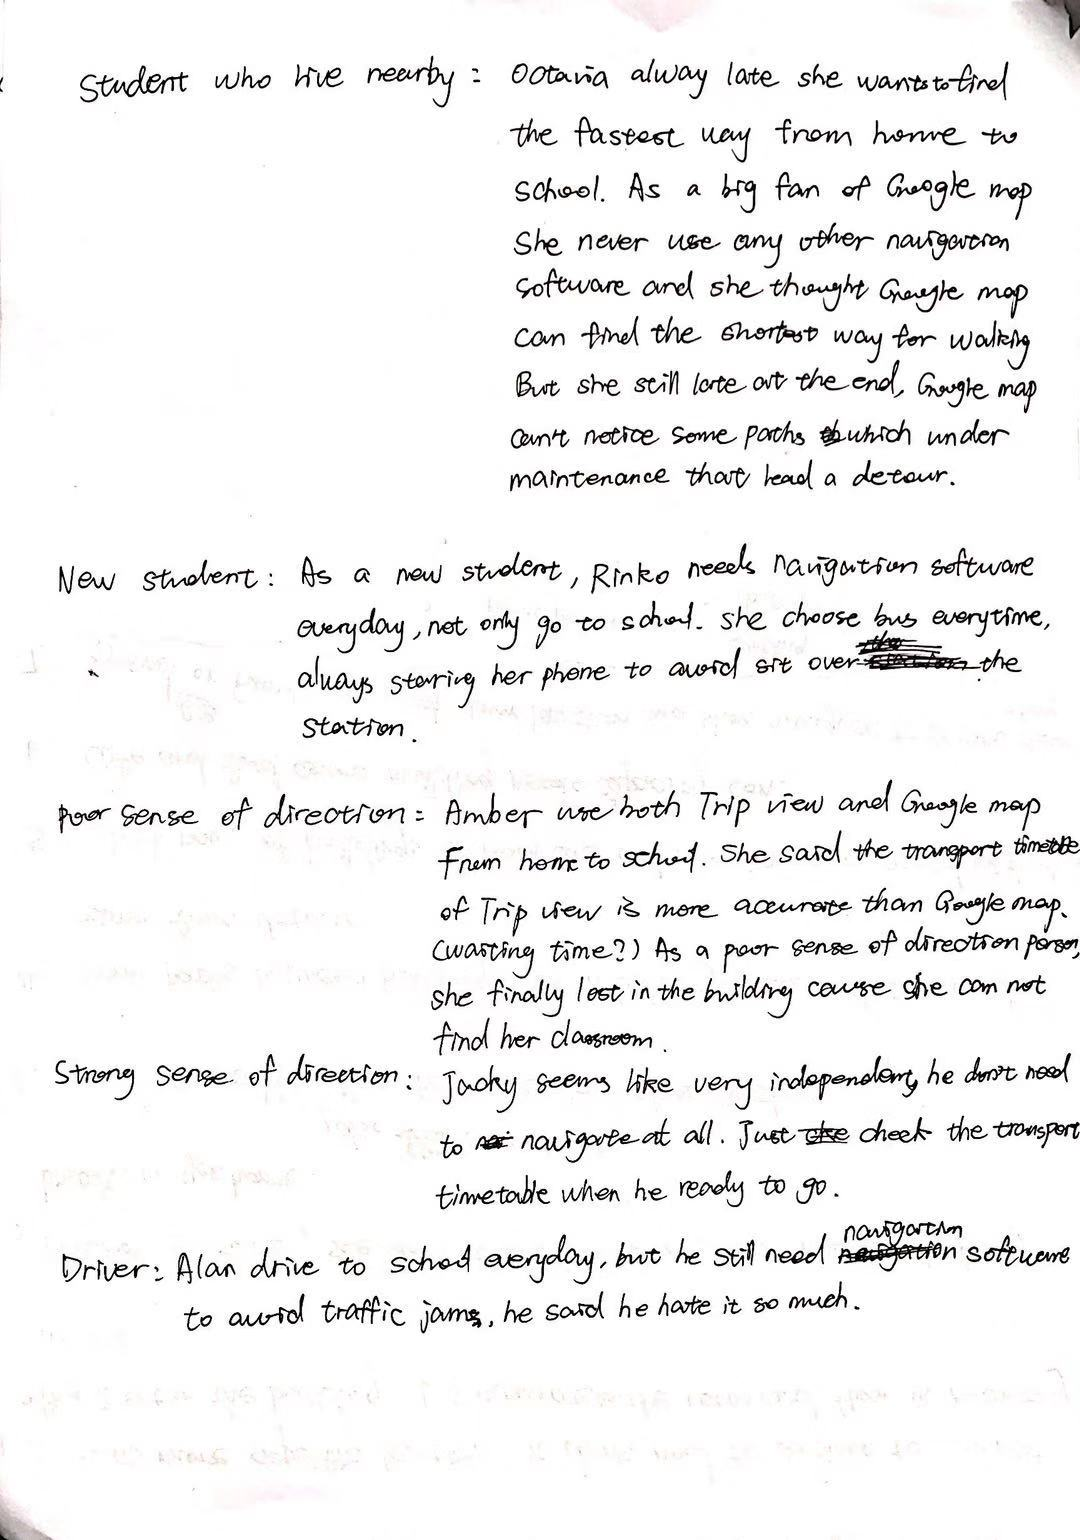 Student who live nearby: Octavia alway late she wants to find
the fastest way from home to
school. As a big fan of Google map
She never use any other navigation
software and she thought Google map
can find the shortest way for walking
But she still late at the end, Google map
can't notice some paths which under
maintenance that lead a detour.
New student: As a new student, Rinko needs navigation software
everyday, not only go to school. she choose bus everytime,
always starring her phone to avoid sit over the
station.
Poor sense of direction: Amber use both Trip view and Google map
From home to school. She said the transport timetable
of Trip view is more accurate than Google map.
(waiting time?) As a poor sense of direction person,
she finally lost in the building cause she can not
find her classroom.
Strong sense of direction: Jacky seems like very independent, he don't need
to navigate at all. Just check the transport
timetable when he ready to go.
Driver: Alan drive to school everyday, but he still need navigation software
to avoid traffic jams, he said he hate it so much.